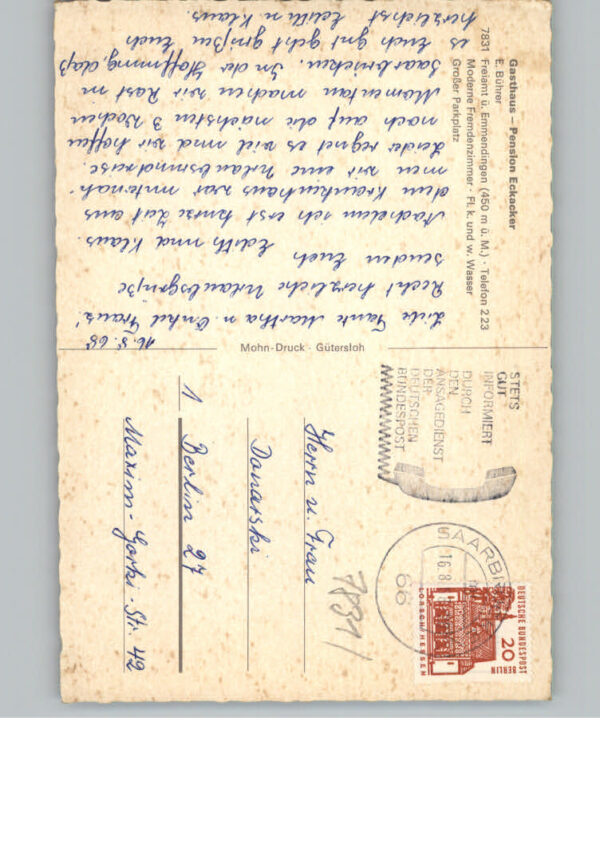 Gasthaus – Pension Eckacker
E. Bührer
7831 Freiamt ü. Emmendingen (450 m ü. M.) · Telefon 2 23
Moderne Fremdenzimmer · Fl. k. und w. Wasser
Großer Parkplatz
16. 8. 68
Liebe Tante Martha u. Onkel Franz!
Recht herzliche Urlaubsgrüße
senden Euch
Edith und Klaus.
Nachdem ich erst kurze Zeit aus
dem Krankenhaus war unterneh-
men wir eine Urlaubsrundreise.
Leider regnet es viel und wir hoffen
noch auf die nächsten 3 Wochen
Momentan machen wir Rast in
Saarbrücken. In der Hoffnung, daß
es Euch gut geht grüßen Euch
herzlichst Edith u. Klaus.
Mohn-Druck · Gütersloh
STETS
GUT
INFORMIERT
DURCH
DEN
ANSAGEDIENST
DER
DEUTSCHEN
BUNDESPOST
SAARBR
16.8.
66
DEUTSCHE BUNDESPOST
BERLIN
20
LORSCH/HESSEN
7831/
Herrn u. Frau
Donarski
1 Berlin 27
Maxim-Gorki-Str. 42